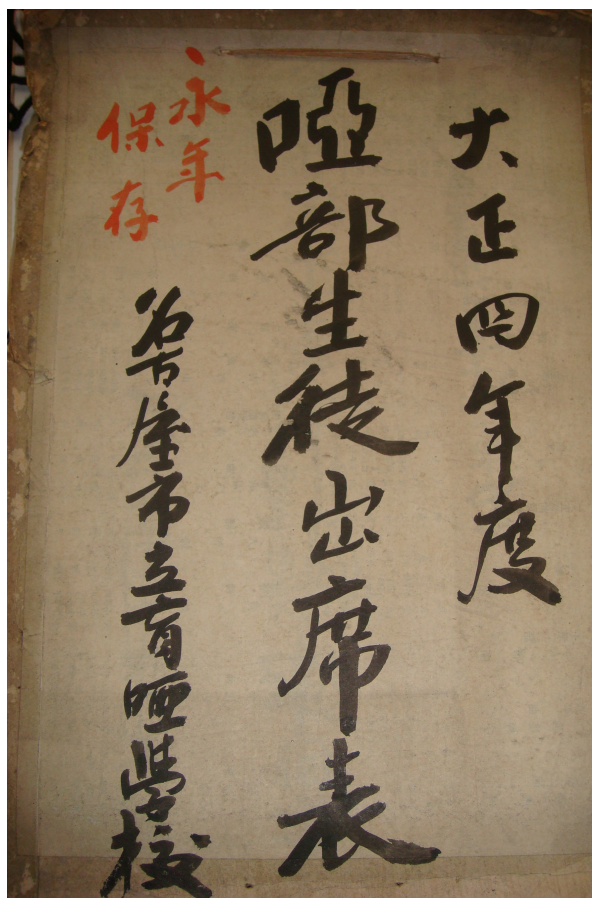 大正四年度
啞部生徒出席表
永年
保存
名古屋市立盲啞學校